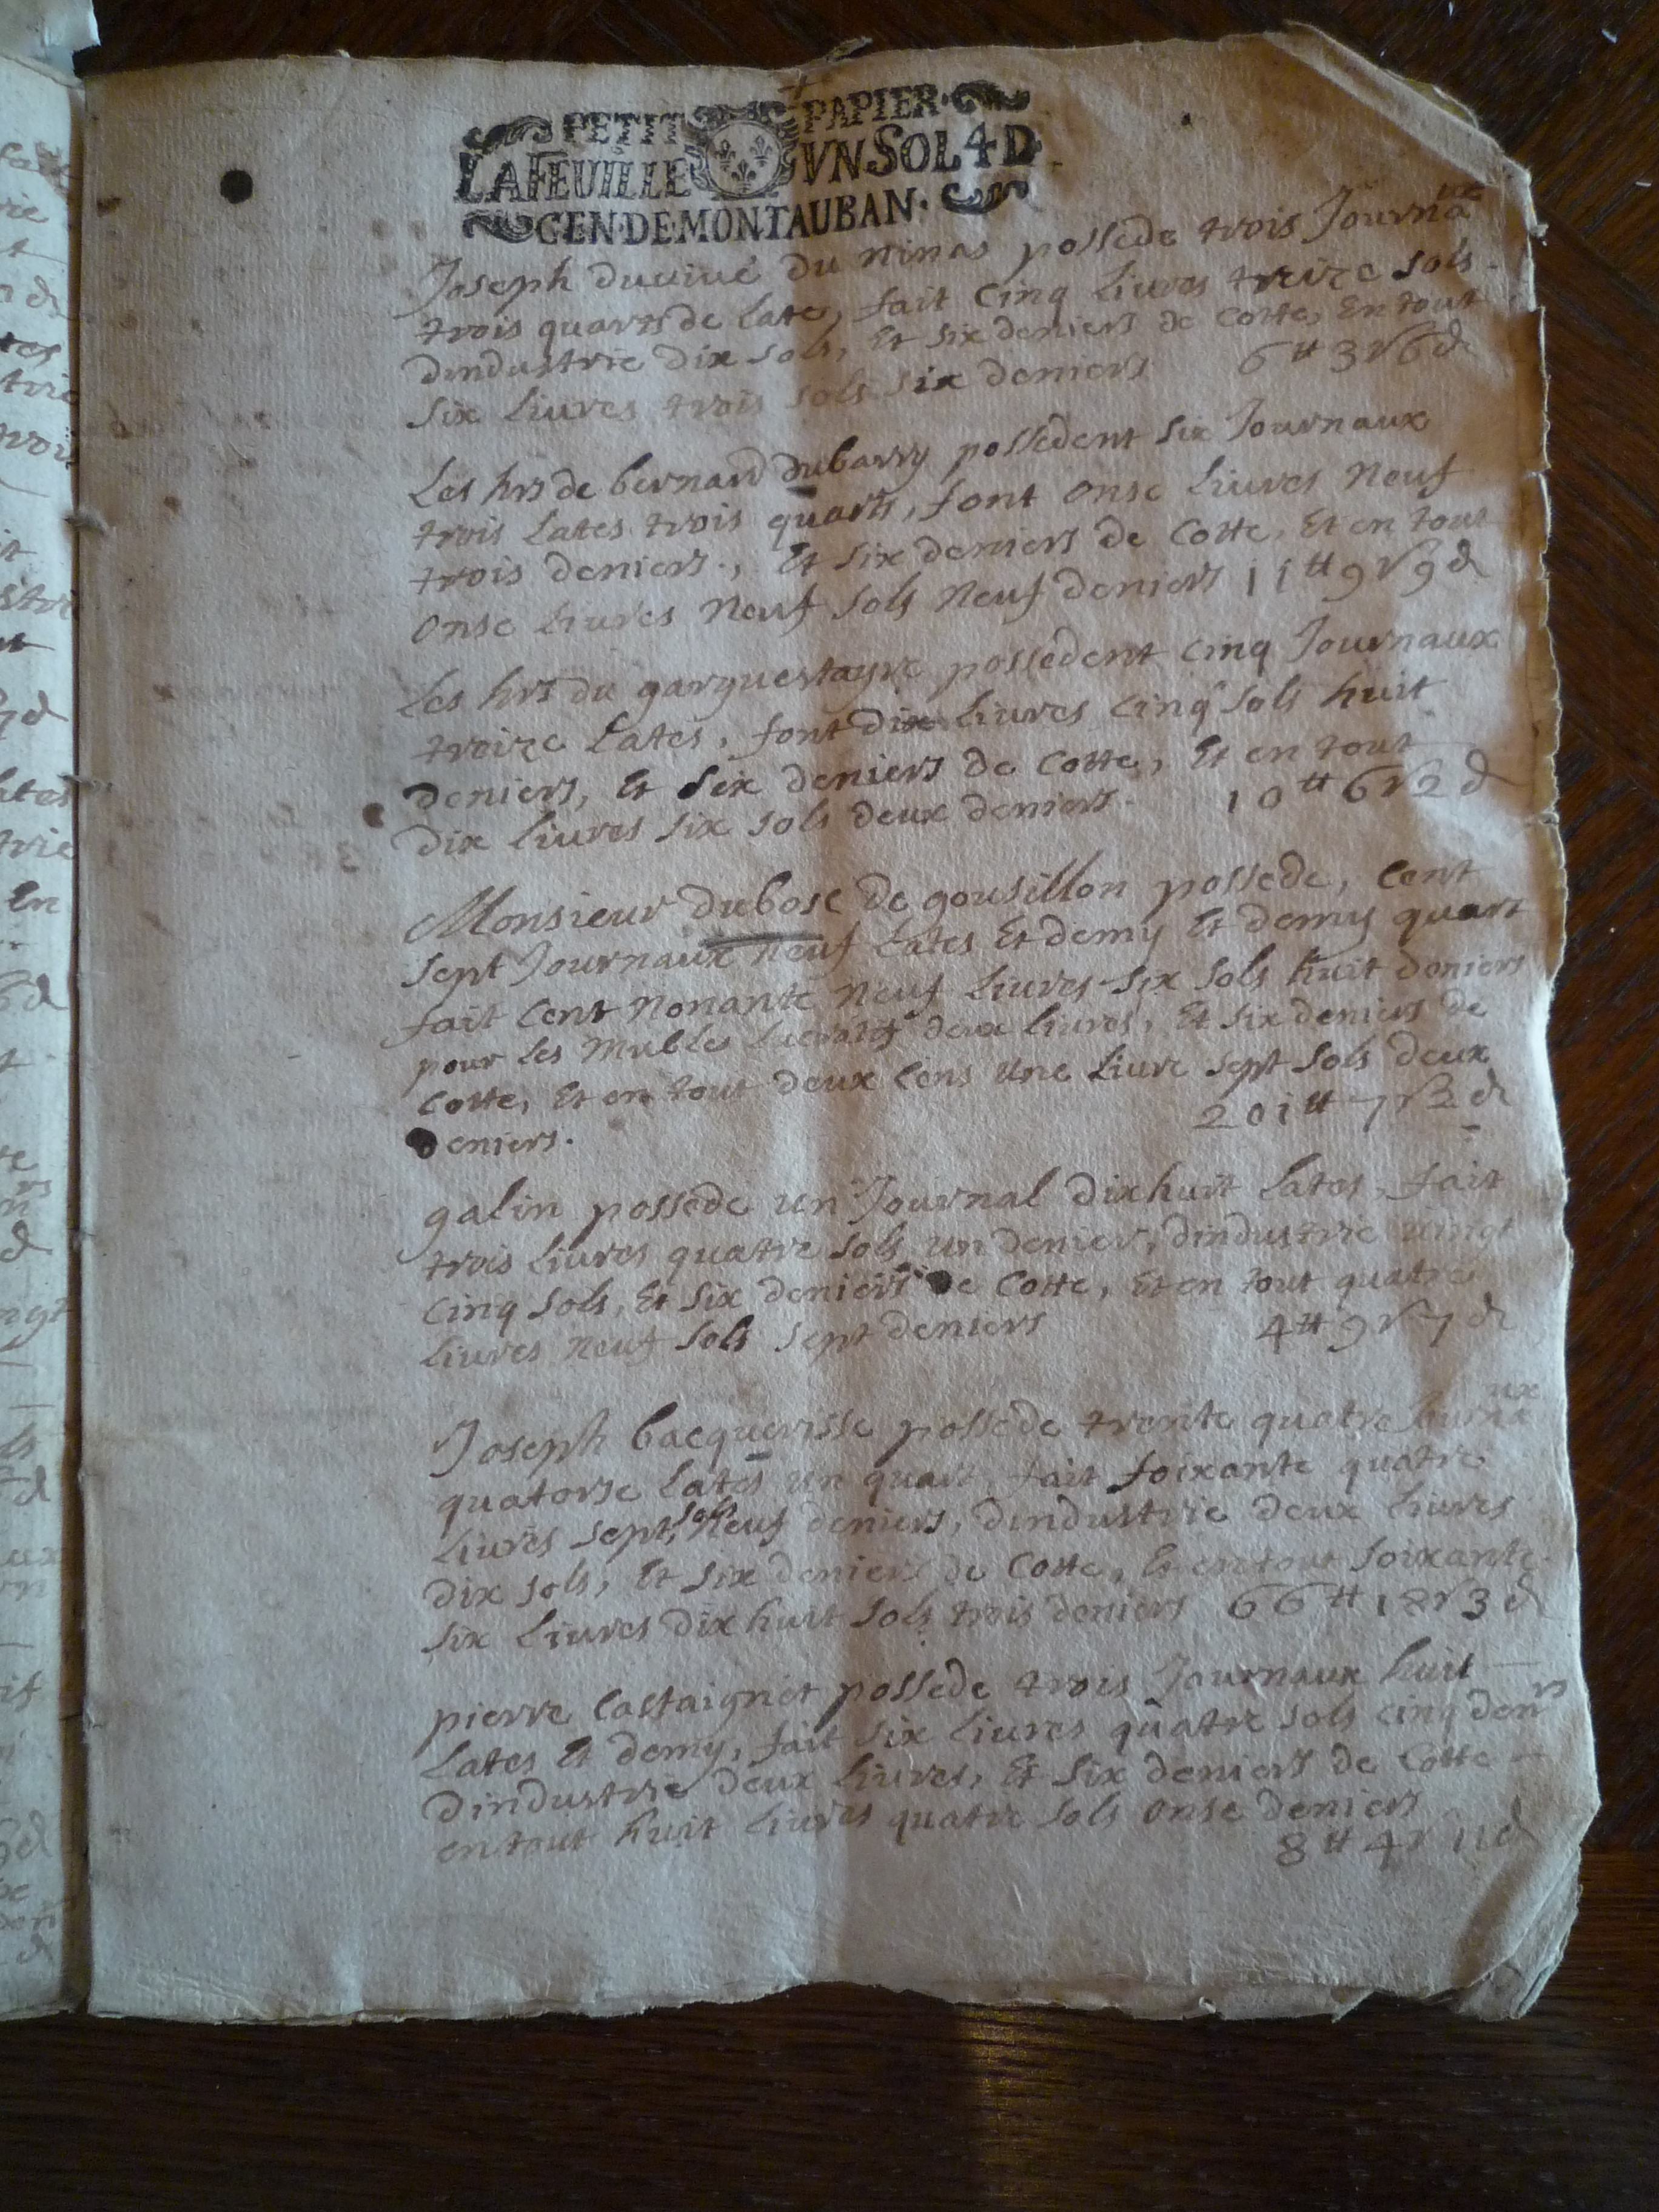 PETIT PAPIER
LA FEUILLE VN SOL 4 D
GEN·DE·MONTAUBAN·
Joseph duviué du minas possede trois Journaux
trois quarts de Late, fait Cinq Liures treize sols
dindustrie dix sols, Et six deniers de Cotte, En tout
six Liures trois sols six deniers 6 ₶ 3 s 6 d
Les hrs de bernard dubarry possedent six Journaux
trois Lates trois quarts, font onse Liures Neuf
trois deniers., Et six deniers de Cotte, Et en tout
onse Liures Neuf sols Neuf deniers 11 ₶ 9 s 9 d
Les hrs du garquestayre possedent cinq Journaux
treize Lates, font dix Liures Cinq sols huit
deniers, Et six deniers de Cotte, Et en tout
dix Liures six sols deux deniers. 10 ₶ 6 s 2 d
Monsieur dubosc de gousillon possede, Cent
sept Journaux neuf Lates Et demy Et demy quart
fait Cent Nonante Neuf Liures six sols huit deniers
pour Les Mubles Lucratifs deux Liures, Et six deniers de
Cotte, Et en tout deux Cens Une Liure sept sols deux
deniers. 201 ₶ 7 s 2 d
galin possede un Journal dixhuit Lates, fait
trois Liures quatre sols un denier, dindustrie vingt
Cinq sols, Et six deniers de Cotte, Et en tout quatre
Liures Neuf sols sept deniers 4 ₶ 9 s 7 d
Joseph bacquerisse possede trente quatre Journaux
quatorse Lates un quart, fait soixante quatre
Liures sept sols Neuf deniers, dindustrie deux Liures
dix sols, Et six deniers de Cotte, Et en tout soixante
six Liures dixhuit sols trois deniers 66 ₶ 18 s 3 d
pierre Castaignet possede trois Journaux huit
Lates Et demy, fait six Liures quatre sols cinq denrs
dindustrie deux Liures, Et six deniers de Cotte
en tout huit Liures quatre sols onse deniers
8 ₶ 4 s 11 d